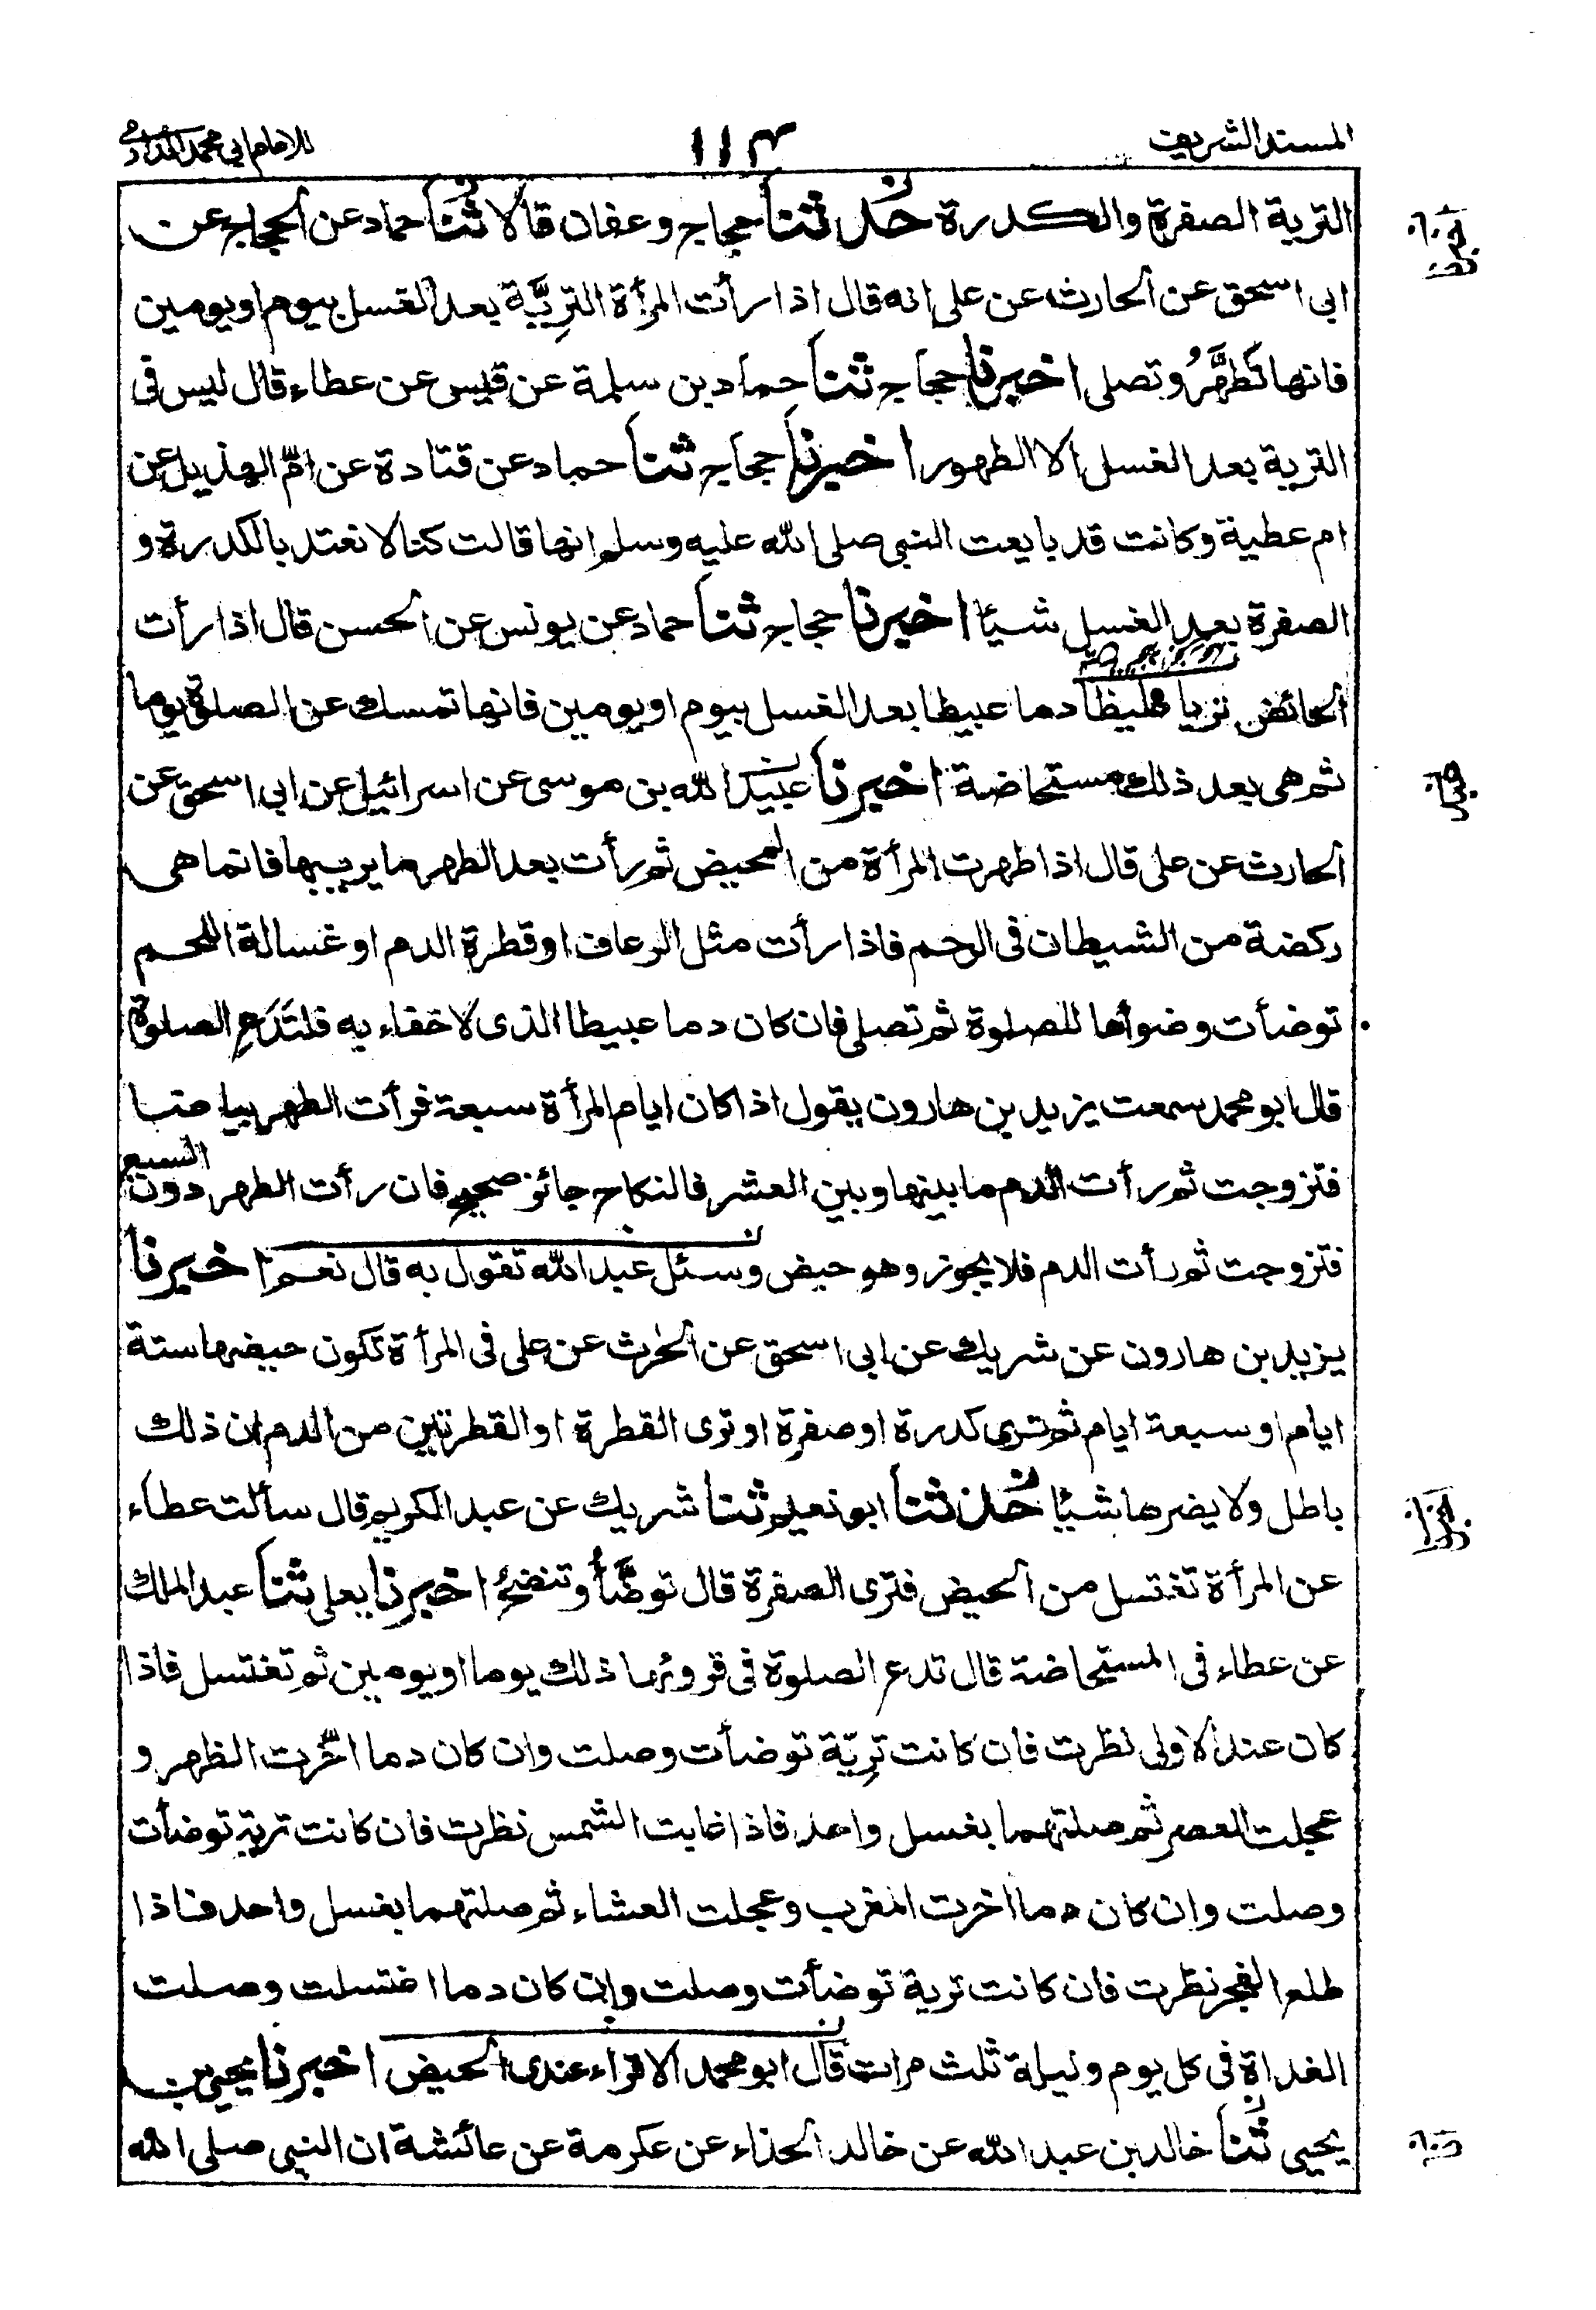 المسند الشريف ١١٤ للامام ابي محمد الدارمي
الترية الصفرة والكدرة حدثنا حجاج وعفان قالا ثنا حماد عن الحجاج عن
ابي اسحق عن الحارث عن على انه قال اذا رأت المرأة التريّة بعد الغسل بيوم او يومين
فانها تَطهَّرُ وتصلى اخبرنا حجاج ثنا حماد بن سلمة عن قيس عن عطاء قال ليس فى
الترية بعد الغسل الا الطهور اخبرنا حجاج ثنا حماد عن قتادة عن امّ الهذيل عن
ام عطية وكانت قد بايعت النبى صلى الله عليه وسلم انها قالت كنا لا نعتد بالكدرة و
الصفرة بعد الغسل شيئا اخبرنا حجاج ثنا حماد عن يونس عن الحسن قال اذا رأت
الحائض تريا غليظا دما عبيطا بعد الغسل بيوم او يومين فانها تمسك عن الصلوة يوما
ثم هى بعد ذلك مستحاضة اخبرنا عبيد الله بن موسى عن اسرائيل عن ابى اسحق عن
الحارث عن على قال اذا طهرت المرأة من المحيض ثم رأت بعد الطهر ما يريبها فانما هى
ركضة من الشيطان فى الرحم فاذا رأت مثل الرعاف او قطرة الدم او غسالة اللحم
توضأت وضوأها للصلوة ثم تصلى فان كان دما عبيطا الذى لا خفاء به فلتَدَعِ الصلوة
قال ابو محمد سمعت يزيد بن هارون يقول اذا كان ايام المرأة سبعة فرأت الطهر بياضا
فتزوجت ثم رأت الدم ما بينها وبين العشر فالنكاح جائز صحيح فان رأت الطهر دون السبع
فتزوجت ثم رأت الدم فلا يجوز وهو حيض وسئل عبد الله تقول به قال نعم اخبرنا
يزيد بن هارون عن شريك عن ابى اسحق عن الحٰرث عن على فى المرأة تكون حيضها ستة
ايام او سبعة ايام ثم ترى كدرة او صفرة او ترى القطرة او القطرتين من الدم ان ذلك
باطل ولا يضرها شيئا حدثنا ابو نعيم ثنا شريك عن عبد الكريم قال سألت عطاء
عن المرأة تغتسل من الحيض فترى الصفرة قال توضّأُ وتنضحُ اخبرنا يعلى ثنا عبد الملك
عن عطاء فى المستحاضة قال تدع الصلوة فى قروئها ذلك يوما او يومين ثم تغتسل فاذا
كان عند الاولى نظرت فان كانت ترِيّة توضأت وصلت وان كان دما اخّرت الظهر و
عجلت العصر ثم صلتهما بغسل واحد فاذا غابت الشمس نظرت فان كانت ترية توضأت
وصلت وان كان دما اخرت المغرب وعجلت العشاء ثم صلتهما بغسل واحد فاذا
طلع الفجر نظرت فان كانت ترية توضأت وصلت وان كان دما اغتسلت وصلت
الغداة فى كل يوم وليلة ثلث مرات قال ابو محمد الاقراء عندى الحيض اخبرنا يحيى بن
يحيى ثنا خالد بن عبد الله عن خالد الحذاء عن عكرمة عن عائشة ان النبى صلى الله